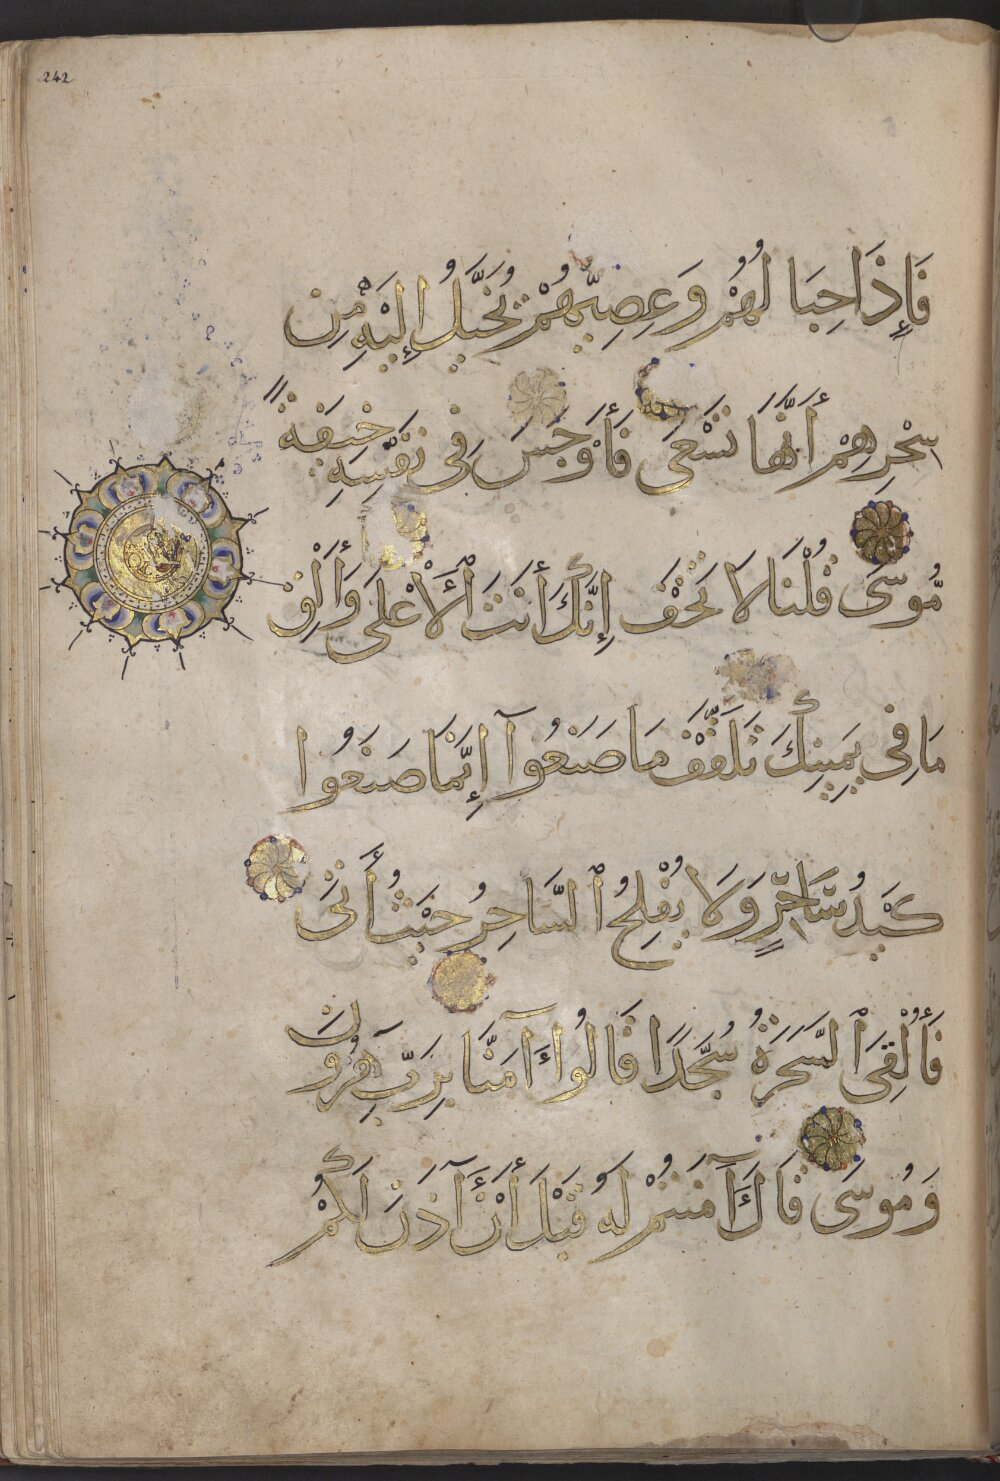 242
فَإِذَا حِبَالُهُمْ وَعِصِيُّهُمْ يُخَيَّلُ إِلَيْهِ مِن
سِحْرِهِمْ أَنَّهَا تَسْعَى فَأَوْجَسَ فِي نَفْسِهِ خِيفَةً
مُّوسَى قُلْنَا لَا تَخَفْ إِنَّكَ أَنتَ ٱلْأَعْلَى وَأَلْقِ
مَا فِي يَمِينِكَ تَلَقَّفْ مَا صَنَعُوٓا إِنَّمَا صَنَعُوا
كَيْدُ سَاحِرٍ وَلَا يُفْلِحُ ٱلسَّاحِرُ حَيْثُ أَتَى
فَأُلْقِيَ ٱلسَّحَرَةُ سُجَّدًا قَالُوٓا ءَامَنَّا بِرَبِّ هَرُونَ
وَمُوسَى قَالَ ءَآمَنتُمْ لَهُ قَبْلَ أَنْ ءَآذَنَ لَكُمْ